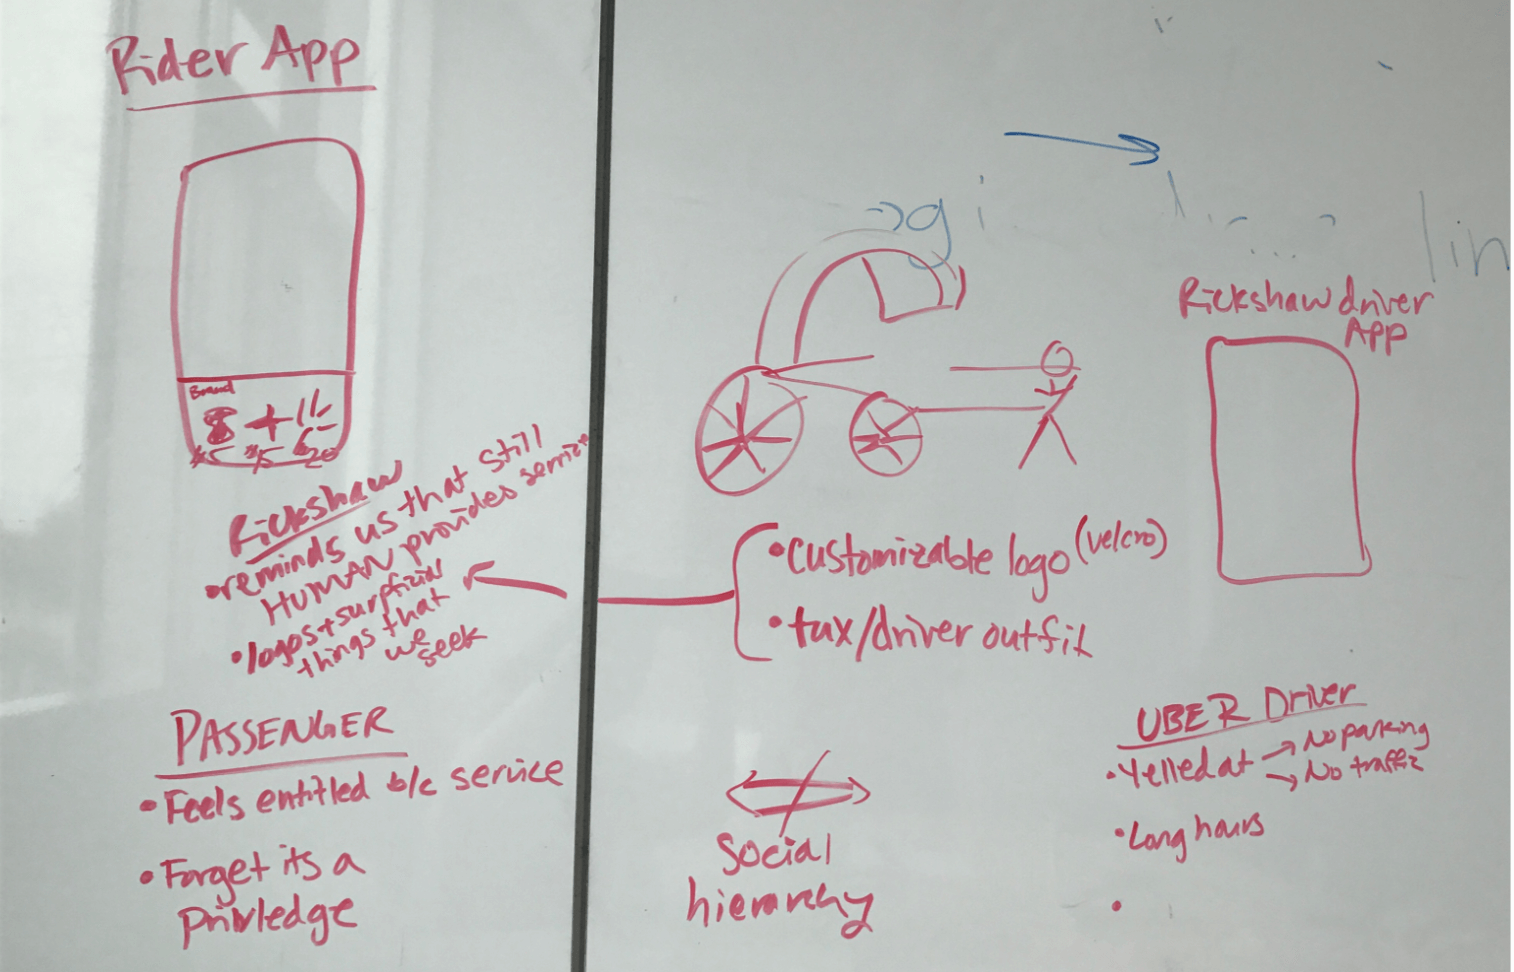 Rider App
Brand
$5 $15 $20
Rickshaw
• reminds us that still
HUMAN provides service
• logos + surpficial
things that
we
seek
PASSENGER
• Feels entitled b/c service
• Forget its a
privledge
• customizable logo (velcro)
• tux/driver outfit
Social
hierarchy
Rickshaw driver
App
UBER Driver
• Yelled at → No parking
→ No traffic
• Long hours
•
lin